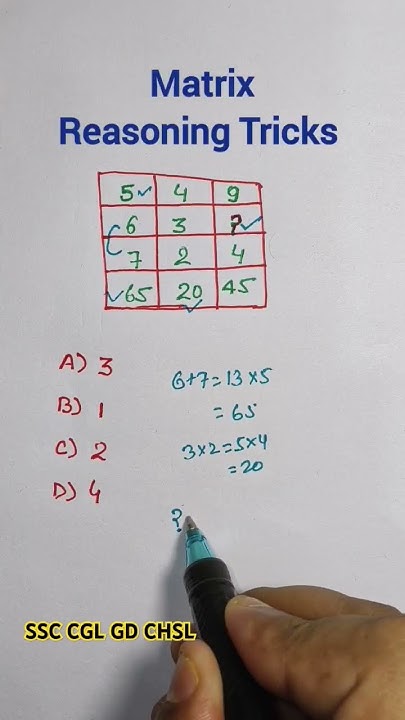 Matrix
Reasoning Tricks
5✓ 4 9
6 3 ?✓
7 2 4
✓65 20✓ 45
A) 3
B) 1
C) 2
D) 4
6+7=13×5
=65
3×2=5×4
=20
?
SSC CGL GD CHSL